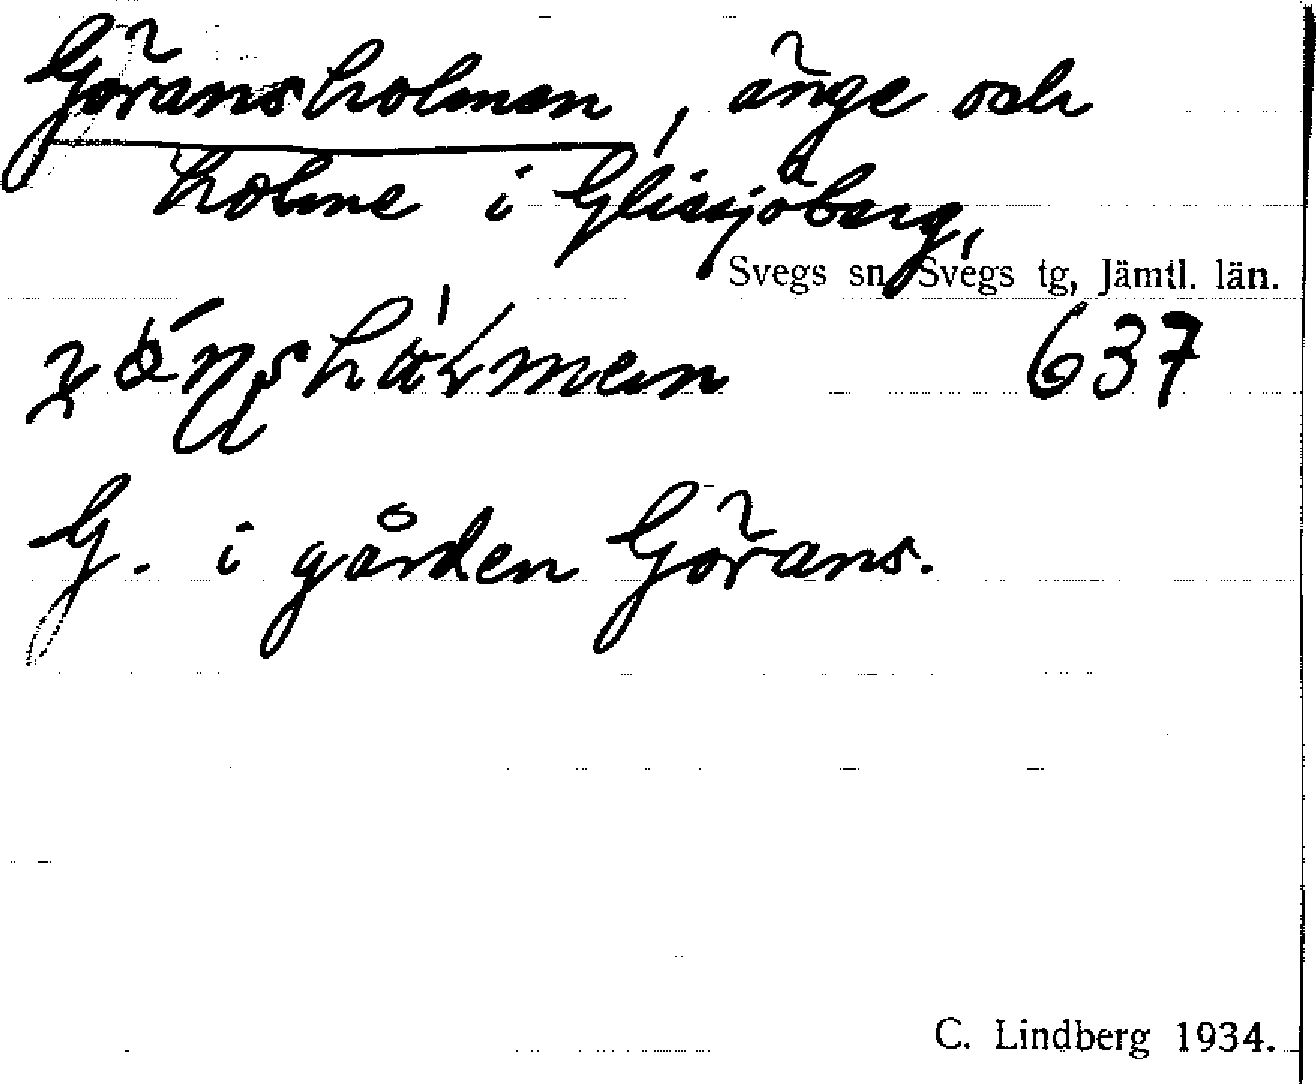 Göransholmen, änge och
holme i Glissjöberg,
Svegs sn, Svegs tg, Jämtl. län.
637
G. i gården Görans.
C. Lindberg 1934.